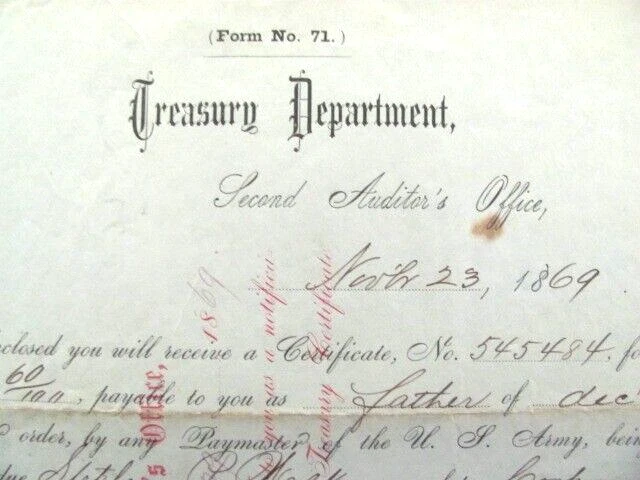 (Form No. 71.)
Treasury Department,
Second Auditor's Office,
Nov'br 23, 1869.
nclosed you will receive a Certificate, No. 545484, fo
60/100, payable to you as father of dec'
order, by any Paymaster of the U. S. Army, bein
's Office,
1869
you as a notifica
Treasury Certificate